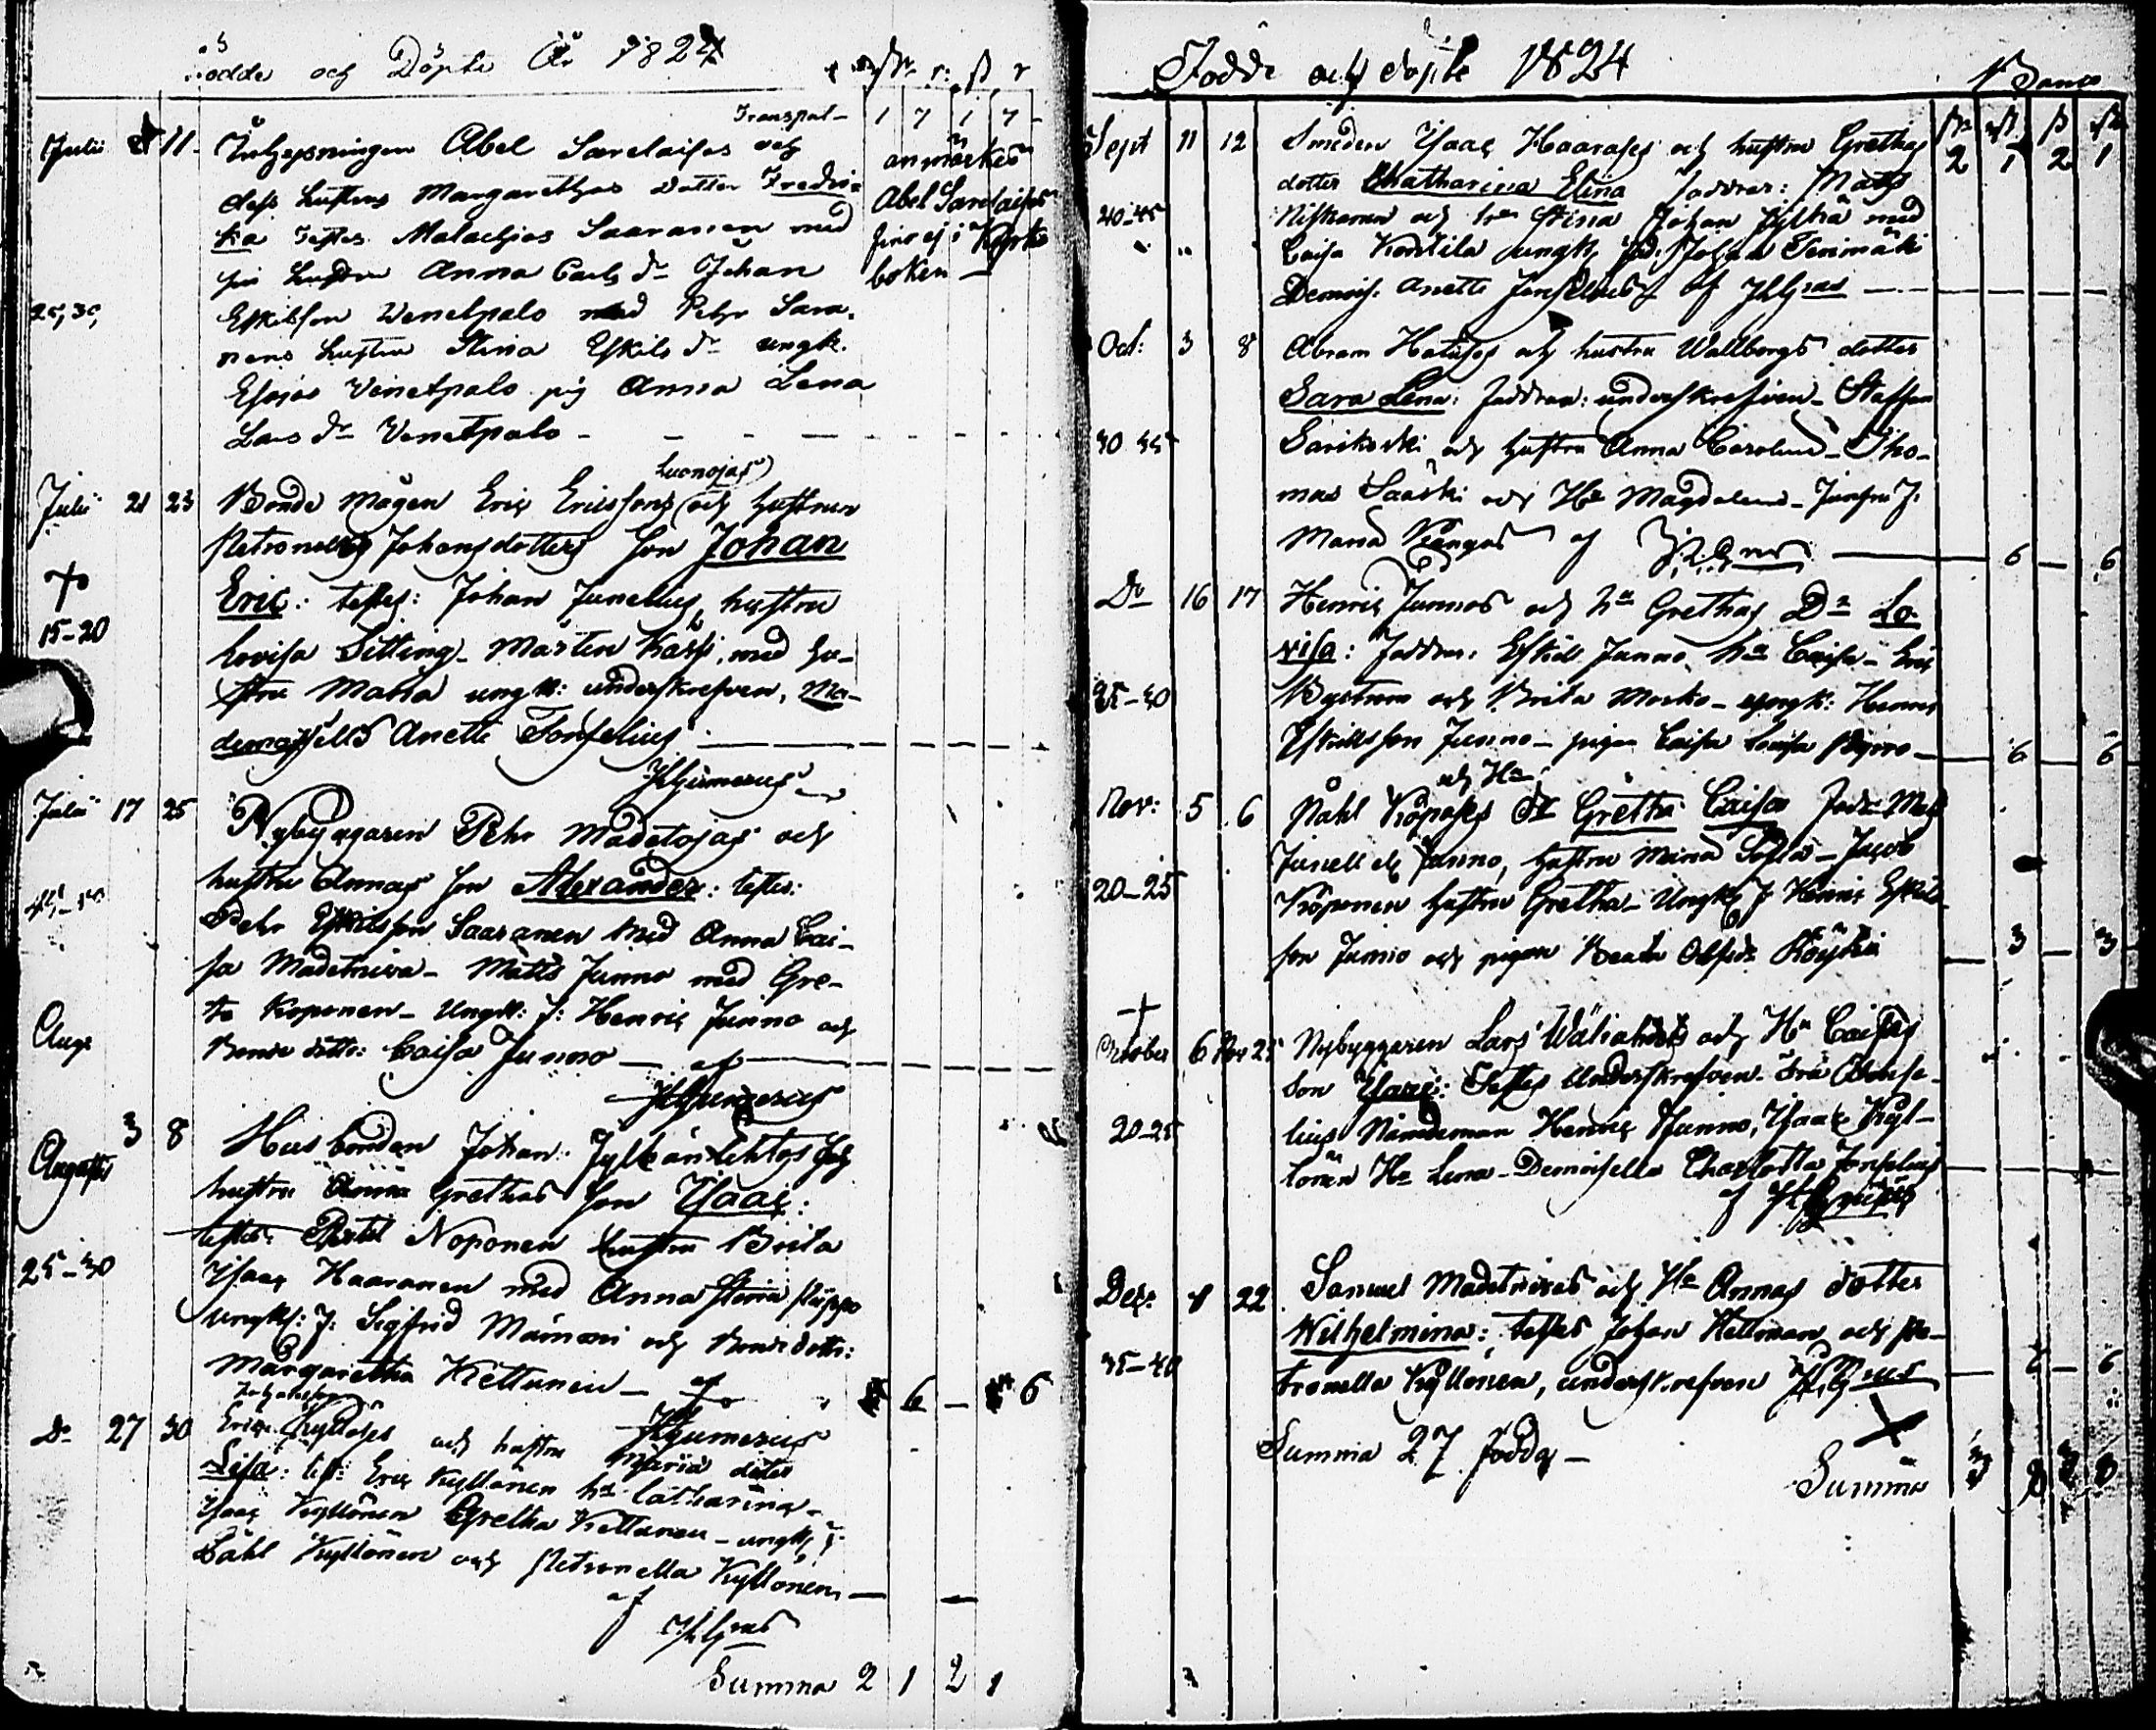 Födde och Döpte År 1824
Transport 1 7 1 7
Julii 11 Inhysningen Abel Sarelaises och
dess hustrus Margarethas dotter Fredri-
ka testes Malachias Saaranen med
sin hustru Anna Carls dr Johan
Eskilsson Venetpalo med Pehr Sara-
nens hustru Stina Eskils dr ungk.
Esaias Venetpalo pig Anna Lena
Lars dr Venetpalo
anmärkes
Abel Sarelaises
fins ej i Kyrko
boken
25, 30
Luonojas
Julii 21 23 Bonde mågen Eric Ericssons och hustrun
Petronellas Johansdotters son Johan
15-20 Eric: testes: Johan Junelius, hustru
Lovisa Sitting - Mårten Karfs, med hu-
stru Maria ungk: underskrefven, Ma-
demoisells Anette Fonselius
Julii 17 25 Nybyggaren Pehr Madetojas och
hustru Annas son Alexander: testes:
Pehr Eskilsson Saaranen med Anna Cai-
sa Madetniva - Matts Junno med Gre-
ta Koponen - Ungk: J: Henric Junno och
Bonde dottr: Caisa Junno - af
Aug:
Augusti 3 8 Husbonden Johan Jylhänlehtos och
hustru Anna Grethas son Isaac:
testes: Bertil Noponen hustru Brita
25-30 Isaac Haaranen med Anna Stina Piippo
ungk: J: Sigfrid Mainoni och Bonde dottr:
Margaretha Kettunen - af 6 - 6
Johansson
Do 27 30 Eric Kyllöses och hustru Maria dotter
Lisa: test: Eric Kyllönen ha Catharina -
Isaac Kyllönen Gretha Kettunen - ungk J.
Påhl Kyllönen och Petronella Kyllönen
af
Summa 2 1 2 1
Födde och döpte 1824
Sept 11 12 Smeden Isaac Haarases och hustru Grethas 2 1 2 1
dotter Chatharina Elina faddrar: Matts
40-45 Niskanen och hn Stina Johan Jylhä med
Caisa Konttila ungk Johan Tenimäki
Demois. Anette Fonselius af
Oct: 3 8 Abram Hatuses och hustru Wallborgs dotter
Sara Lena: faddrar: underskrefven - Staffan
30 35 Sarikoski och hustru Anna Carolina - Tho-
mas Saaski och Ha Magdalena - Junfru J.
Maria Kangas af 6 6
Do 16 17 Henric Junnos och ha Grethas Dr Lo-
visa: faddrar: Eskill Junno ha Caisa - Eric
25-30 Byström och Brita Morko - ungk: Henric
Eskillsson Junno - pigan Caisa Lovisa 6 6
och Ha
Nov: 5 6 Påhl Köpases dr Gretha Caisa fadr: Mats
Junell och Junno, hustru Maria Sofia - Jacob
20-25 Köponen hustru Gretha - Ungk J Henric Eskils-
son Junno och pigan Beata Olofsdr 3 3
October 6 Nov 25 Nybyggaren Lars Wäliahos och Ha Caisas
son Isaac: Testes Underskrefven - Fru Fonse-
20-25 lius Nämdeman Henric Junno, Isaac Kyl-
lönen Ha Lena - Demoisella Charlotta Fonselius
af
Dec: 22 Samuel Madetnivas och Ha Annas dotter
Wilhelmina: testes Johan Heltman och Pe-
35-40 tronella Kyllönen, underskrefven 6
Summa 27 födda -
Summa 3